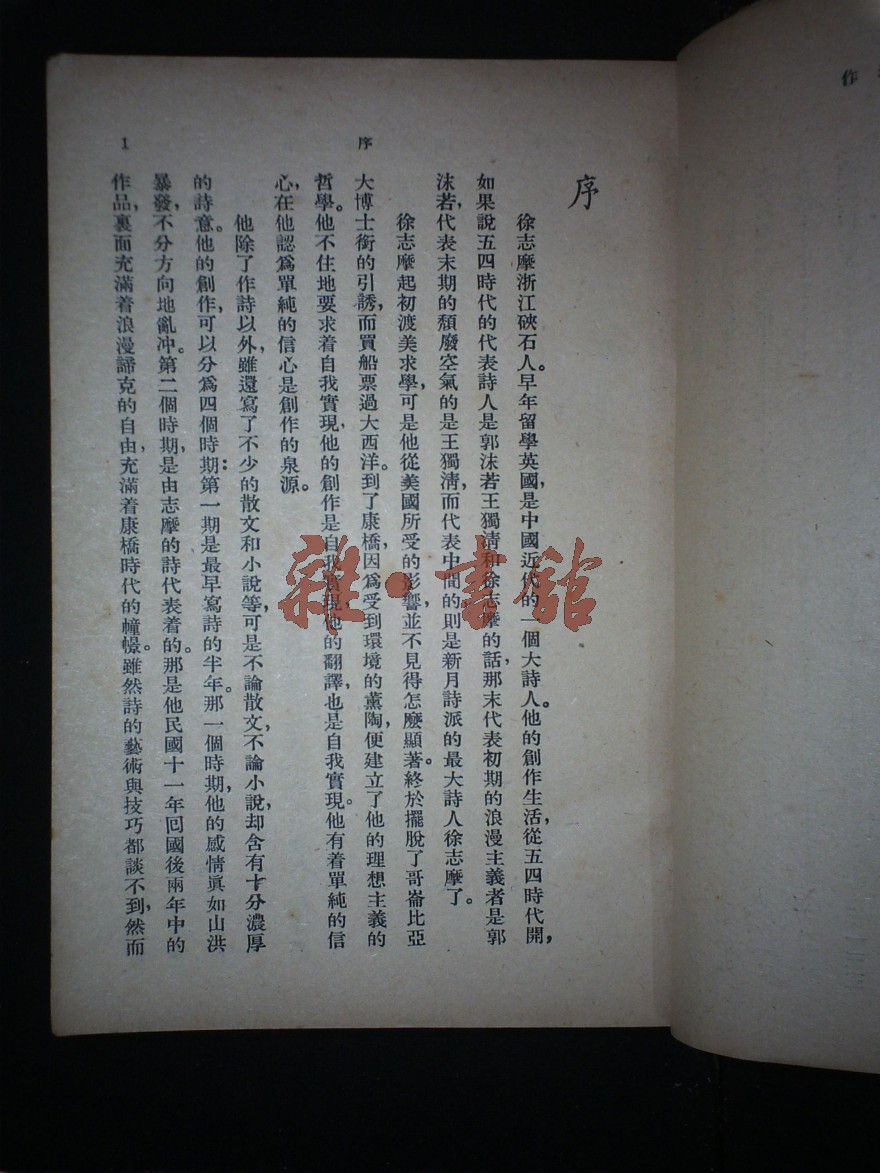 作
序
徐志摩浙江硤石人。早年留學英國,是中國近代的一個大詩人。他的創作生活,從五四時代開,
如果說五四時代的代表詩人是郭沫若王獨清和徐志摩的話,那末代表初期的浪漫主義者是郭
沫若,代表末期的頹廢空氣的是王獨清,而代表中間的則是新月詩派的最大詩人徐志摩了。
徐志摩起初渡美求學,可是他從美國所受的影響並不見得怎麼顯著。終於擺脫了哥崙比亞
大博士銜的引誘,而買船票過大西洋。到了康橋,因爲受到環境的薰陶,便建立了他的理想主義的
哲學。他不住地要求着自我實現,他的創作是自我實現,他的翻譯,也是自我實現。他有着單純的信
心,在他認爲單純的信心是創作的泉源。
他除了作詩以外,雖還寫了不少的散文和小說等,可是不論散文,不論小說,却含有十分濃厚
的詩意。他的創作,可以分爲四個時期:第一期是最早寫詩的半年。那一個時期,他的感情眞如山洪
暴發,不分方向地亂冲。第二個時期,是由志摩的詩代表着的。那是他民國十一年回國後兩年中的
作品,裏面充滿着浪漫諦克的自由,充滿着康橋時代的憧憬。雖然詩的藝術與技巧都談不到,然而
序
1
雜·書館